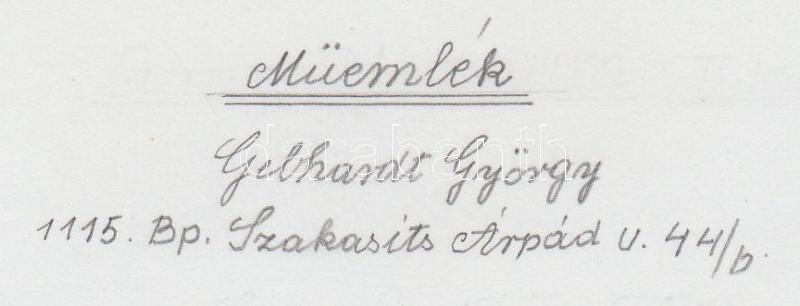 Müemlék
Gebhardt György
1115. Bp. Szakasits Árpád u. 44/b.